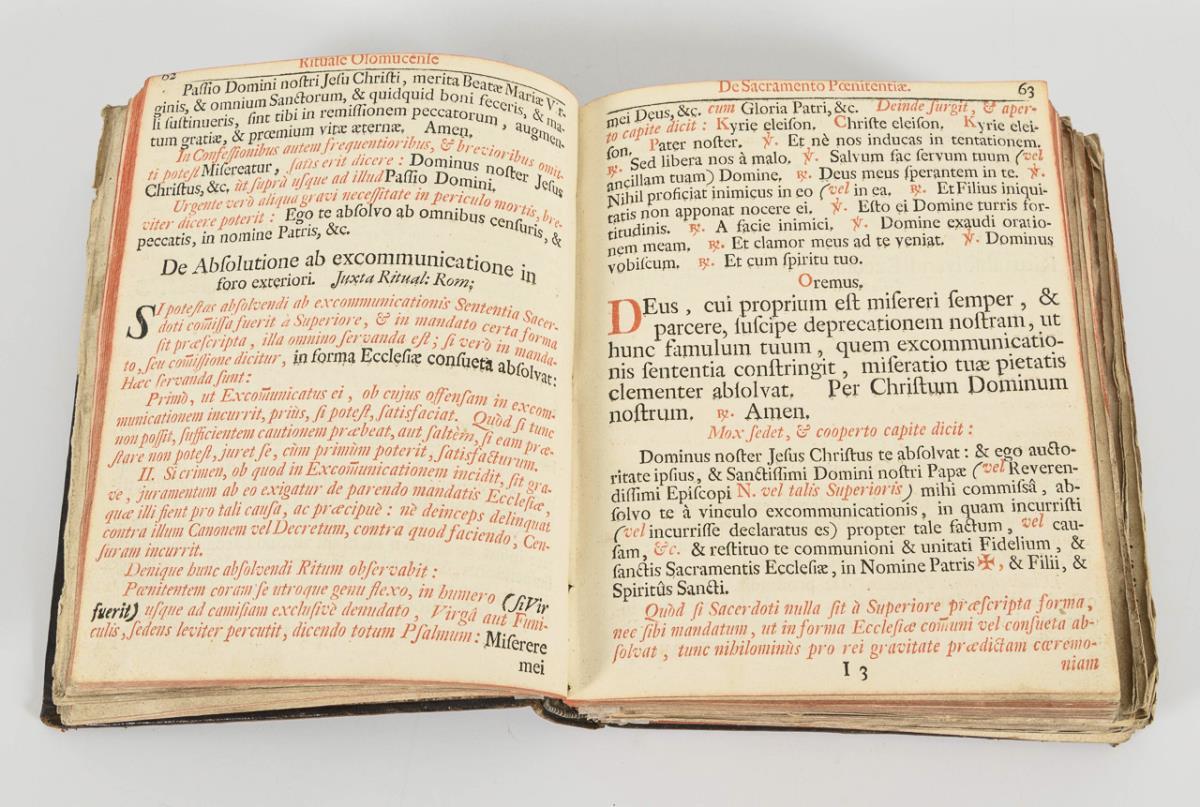 Rituale Olomucense
62
Paſſio Domini noſtri Jeſu Chriſti, merita Beatæ Mariæ Vir-
ginis, & omnium Sanctorum, & quidquid boni feceris, & ma-
li ſuſtinueris, ſint tibi in remiſſionem peccatorum, augmen-
tum gratiæ, & præmium vitæ æternæ. Amen.
In Confeſſionibus autem frequentioribus, & brevioribus omit-
ti poteſt Miſereatur, ſatis erit dicere: Dominus noſter Jeſus
Chriſtus, &c, ùt ſuprà uſque ad illud Paſſio Domini.
Urgente verò aliqua gravi neceſſitate in periculo mortis, bre-
viter dicere poterit: Ego te abſolvo ab omnibus cenſuris, &
peccatis, in nomine Patris, &c.
De Abſolutione ab excommunicatione in
foro exteriori. Juxta Ritual: Rom;
SI poteſtas abſolvendi ab excommunicationis Sententia Sacer-
doti com̃iſſa fuerit à Superiore, & in mandato certa forma
ſit præſcripta, illa omnino ſervanda eſt; ſi verò in manda-
to, ſeu com̃iſſione dicitur, in forma Eccleſiæ conſueta abſolvat:
Hæc ſervanda ſunt:
Primò, ut Excom̃unicatus ei, ob cujus offenſam in excom-
municationem incurrit, priùs, ſi poteſt, ſatisfaciat. Quòd ſi tunc
non poſſit, ſufficientem cautionem præbeat, aut ſaltèm, ſi eam præ-
ſtare non poteſt, juret ſe, cùm primùm poterit, ſatisfacturum.
II. Si crimen, ob quod in Excom̃unicationem incidit, ſit gra-
ve, juramentum ab eo exigatur de parendo mandatis Eccleſiæ,
quæ illi fient pro tali cauſa, ac præcipuè: nè deinceps delinquat
contra illum Canonem vel Decretum, contra quod faciendo, Cen-
ſuram incurrit.
Denique hunc abſolvendi Ritum obſervabit:
Pœnitentem coram ſe utroque genu flexo, in humero (ſi Vir
fuerit) uſque ad camiſiam excluſivè denudato, Virgâ aut Funi-
culis, ſedens leviter percutit, dicendo totum Pſalmum: Miſerere
mei
De Sacramento Pœnitentiæ. 63
mei Deus, &c. cum Gloria Patri, &c. Deinde ſurgit, & aper-
to capite dicit: Kyrie eleiſon. Chriſte eleiſon. Kyrie elei-
ſon. Pater noſter. ℣. Et nè nos inducas in tentationem.
℟. Sed libera nos à malo. ℣. Salvum fac ſervum tuum (vel
ancillam tuam) Domine. ℟. Deus meus ſperantem in te. ℣.
Nihil proficiat inimicus in eo (vel in ea. ℟. Et Filius iniqui-
tatis non apponat nocere ei. ℣. Eſto ei Domine turris for-
titudinis. ℟. A facie inimici. ℣. Domine exaudi oratio-
nem meam. ℟. Et clamor meus ad te veniat. ℣. Dominus
vobiſcum. ℟. Et cum ſpiritu tuo.
Oremus.
DEus, cui proprium eſt miſereri ſemper, &
parcere, ſuſcipe deprecationem noſtram, ut
hunc famulum tuum, quem excommunicatio-
nis ſententia conſtringit, miſeratio tuæ pietatis
clementer abſolvat. Per Chriſtum Dominum
noſtrum. ℟. Amen.
Mox ſedet, & cooperto capite dicit:
Dominus noſter Jeſus Chriſtus te abſolvat: & ego aucto-
ritate ipſius, & Sanctiſſimi Domini noſtri Papæ (vel Reveren-
diſſimi Epiſcopi N. vel talis Superioris) mihi commiſsâ, ab-
ſolvo te à vinculo excommunicationis, in quam incurriſti
(vel incurriſſe declaratus es) propter tale factum, vel cau-
ſam, &c. & reſtituo te communioni & unitati Fidelium, &
ſanctis Sacramentis Eccleſiæ, in Nomine Patris ✠, & Filii, &
Spiritûs Sancti.
Quòd ſi Sacerdoti nulla ſit à Superiore præſcripta forma,
nec ſibi mandatum, ut in forma Eccleſiæ com̃uni vel conſueta ab-
ſolvat, tunc nihilominùs pro rei gravitate prædictam cæremo-
I 3 niam